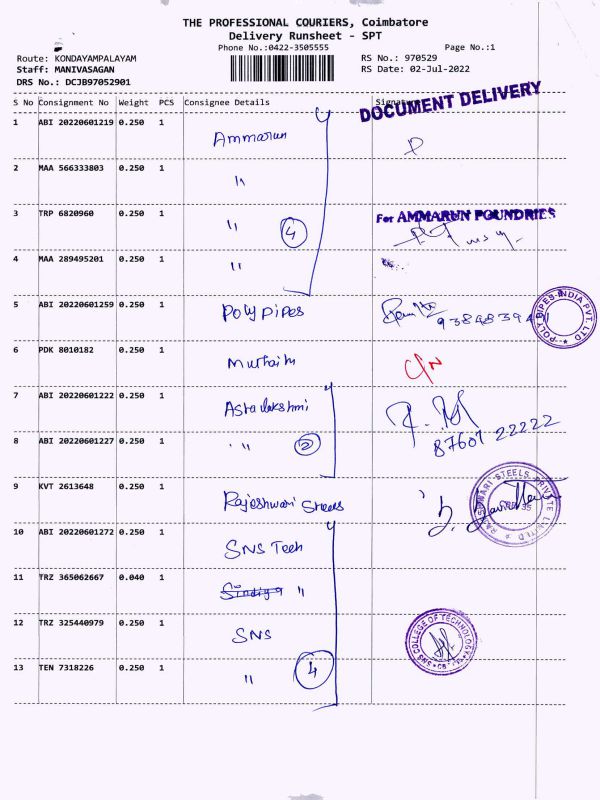 THE PROFESSIONAL COURIERS, Coimbatore
Delivery Runsheet - SPT
Phone No.:0422-3505555
Page No.:1
Route: KONDAYAMPALAYAM
RS No.: 970529
Staff: MANIVASAGAN
RS Date: 02-Jul-2022
DRS No.: DCJB97052901
S No Consignment No Weight PCS Consignee Details Signature
DOCUMENT DELIVERY
1 ABI 20220601219 0.250 1 Ammarun
2 MAA 566333803 0.250 1 "
3 TRP 6820960 0.250 1 " 4
For AMMARUN FOUNDRIES
4 MAA 289495201 0.250 1 "
5 ABI 20220601259 0.250 1 Poly pipes
POLY PIPES INDIA PVT. LTD
6 PDK 8010182 0.250 1
7 ABI 20220601222 0.250 1 Astalakshmi
8 ABI 20220601227 0.250 1 " 2
87607 22222
9 KVT 2613648 0.250 1 Rajeshwari Steels
RAJESHWARI STEELS PRIVATE LIMITED
10 ABI 20220601272 0.250 1 SNS Tech
11 TRZ 365062667 0.040 1 "
12 TRZ 325440979 0.250 1 SNS
SNS COLLEGE OF TECHNOLOGY
13 TEN 7318226 0.250 1 " 4